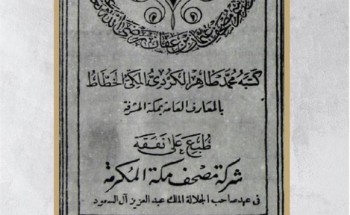 كتبه محمد طاهر الكردي المكي الخطاط
بالمعارف العامة بمكة المشرفة
طبع على نفقة
شركة مصحف مكة المكرمة
في عهد صاحب الجلالة الملك عبد العزيز آل السعود